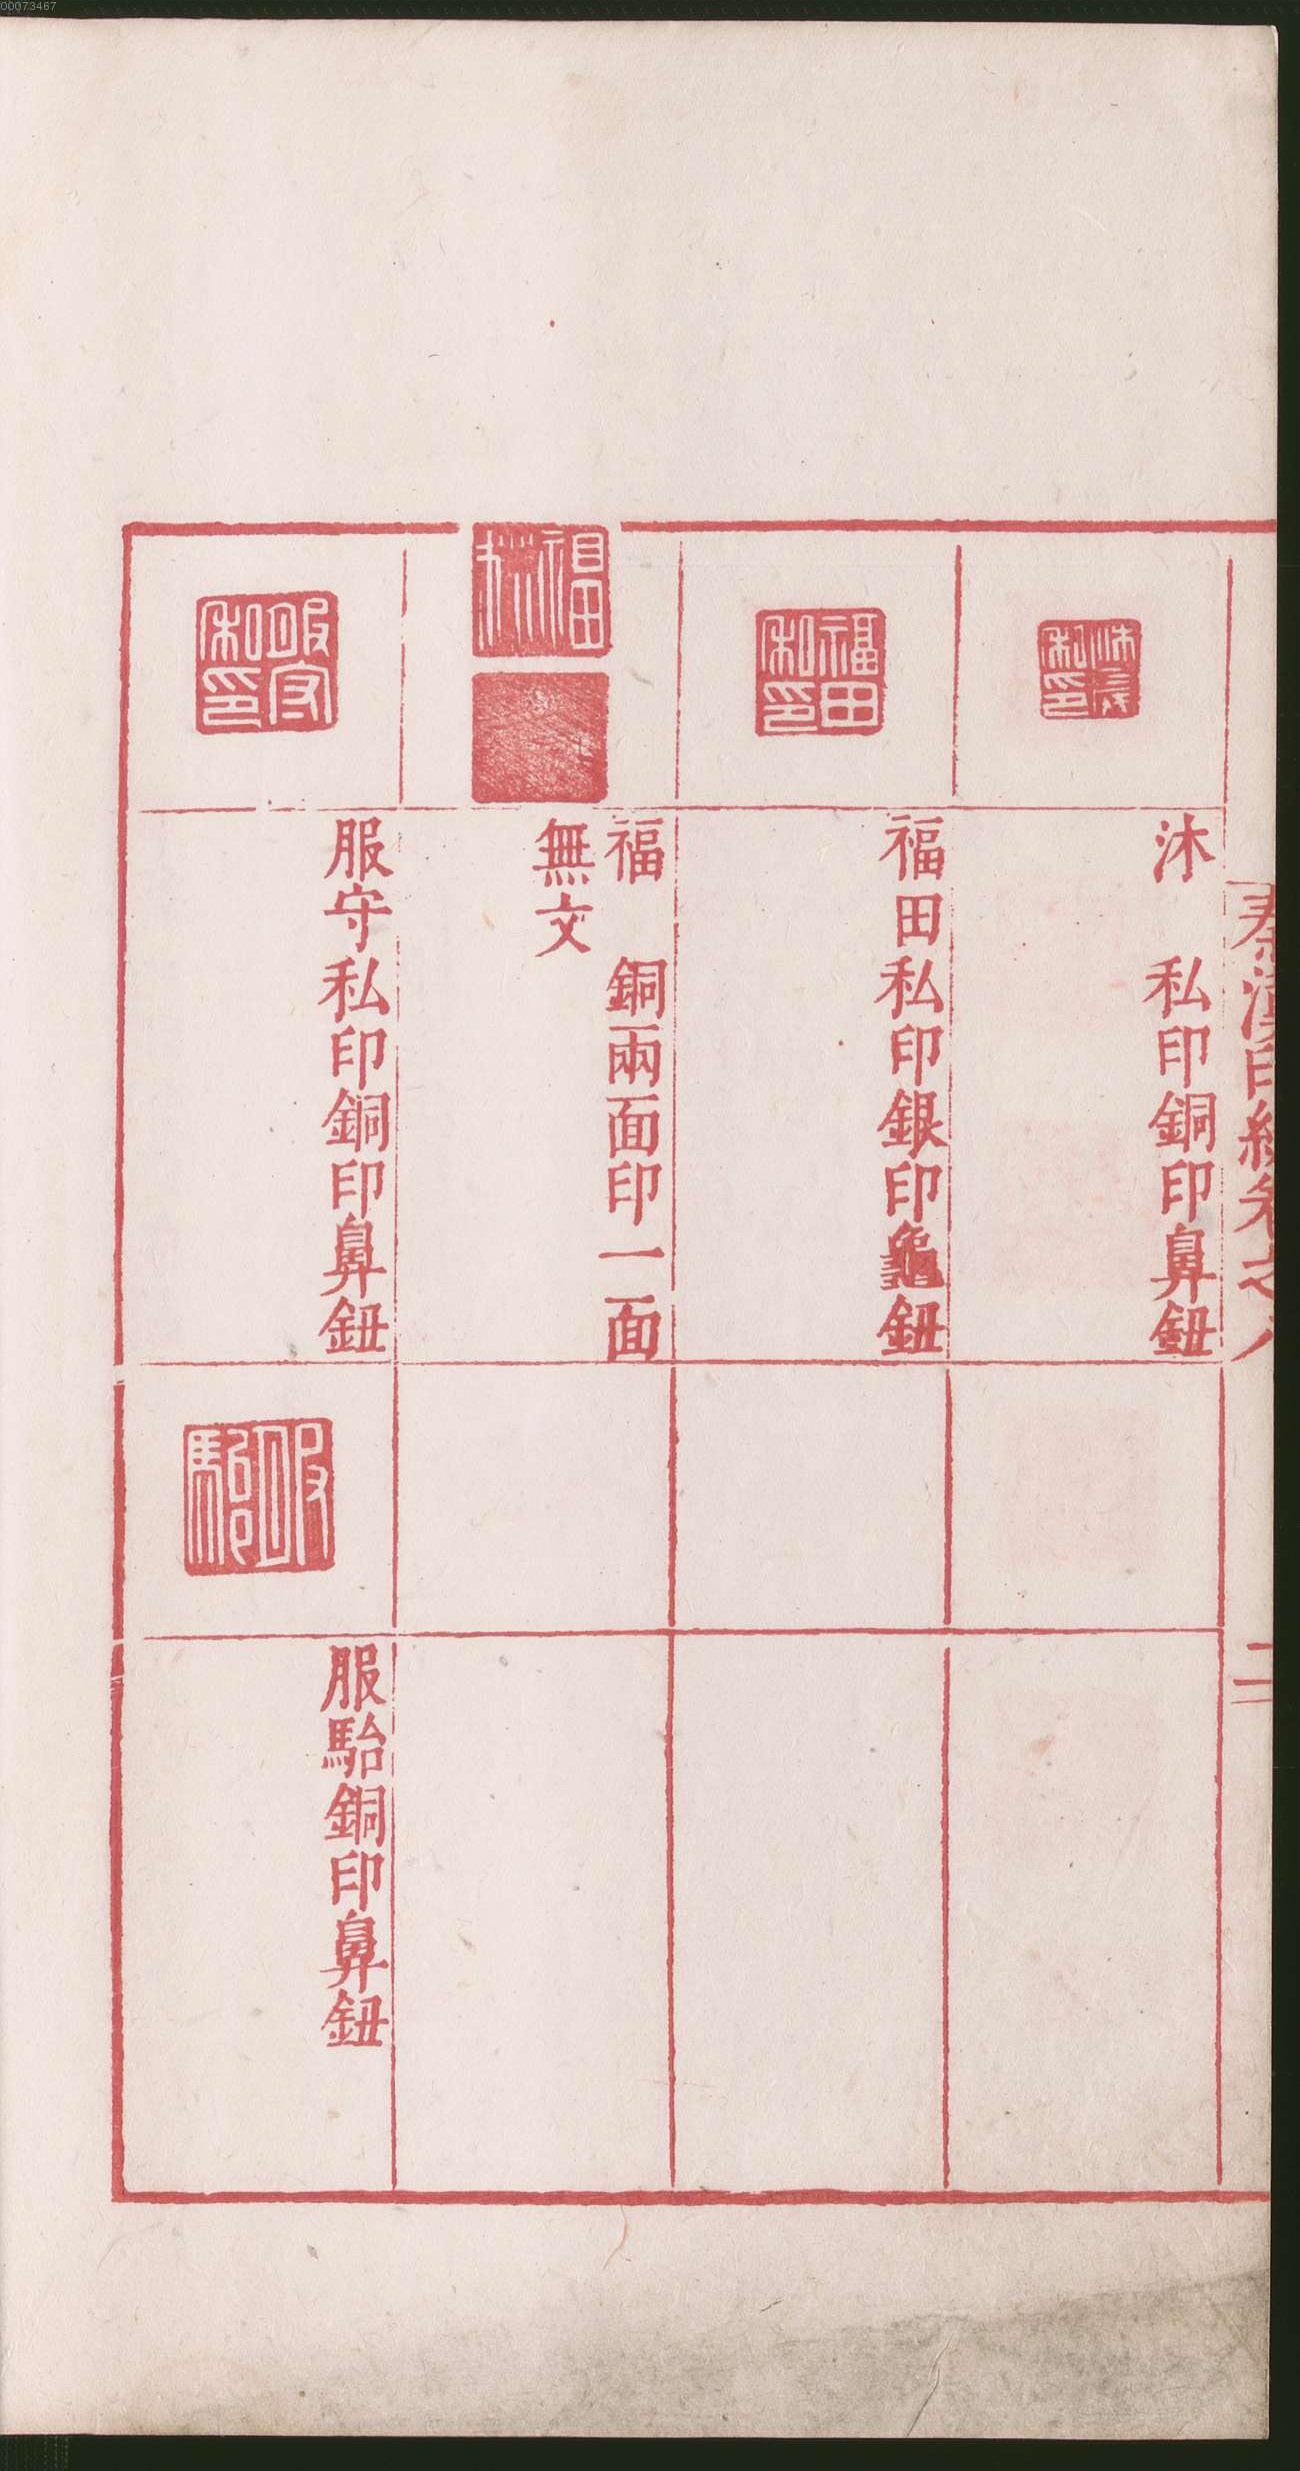 00073467
秦漢印統卷之八
二
沐 私印銅印鼻鈕
福田私印銀印龜鈕
福 銅兩面印一面
無文
服守私印銅印鼻鈕
服駘銅印鼻鈕
福田私印
服守私印
服駘